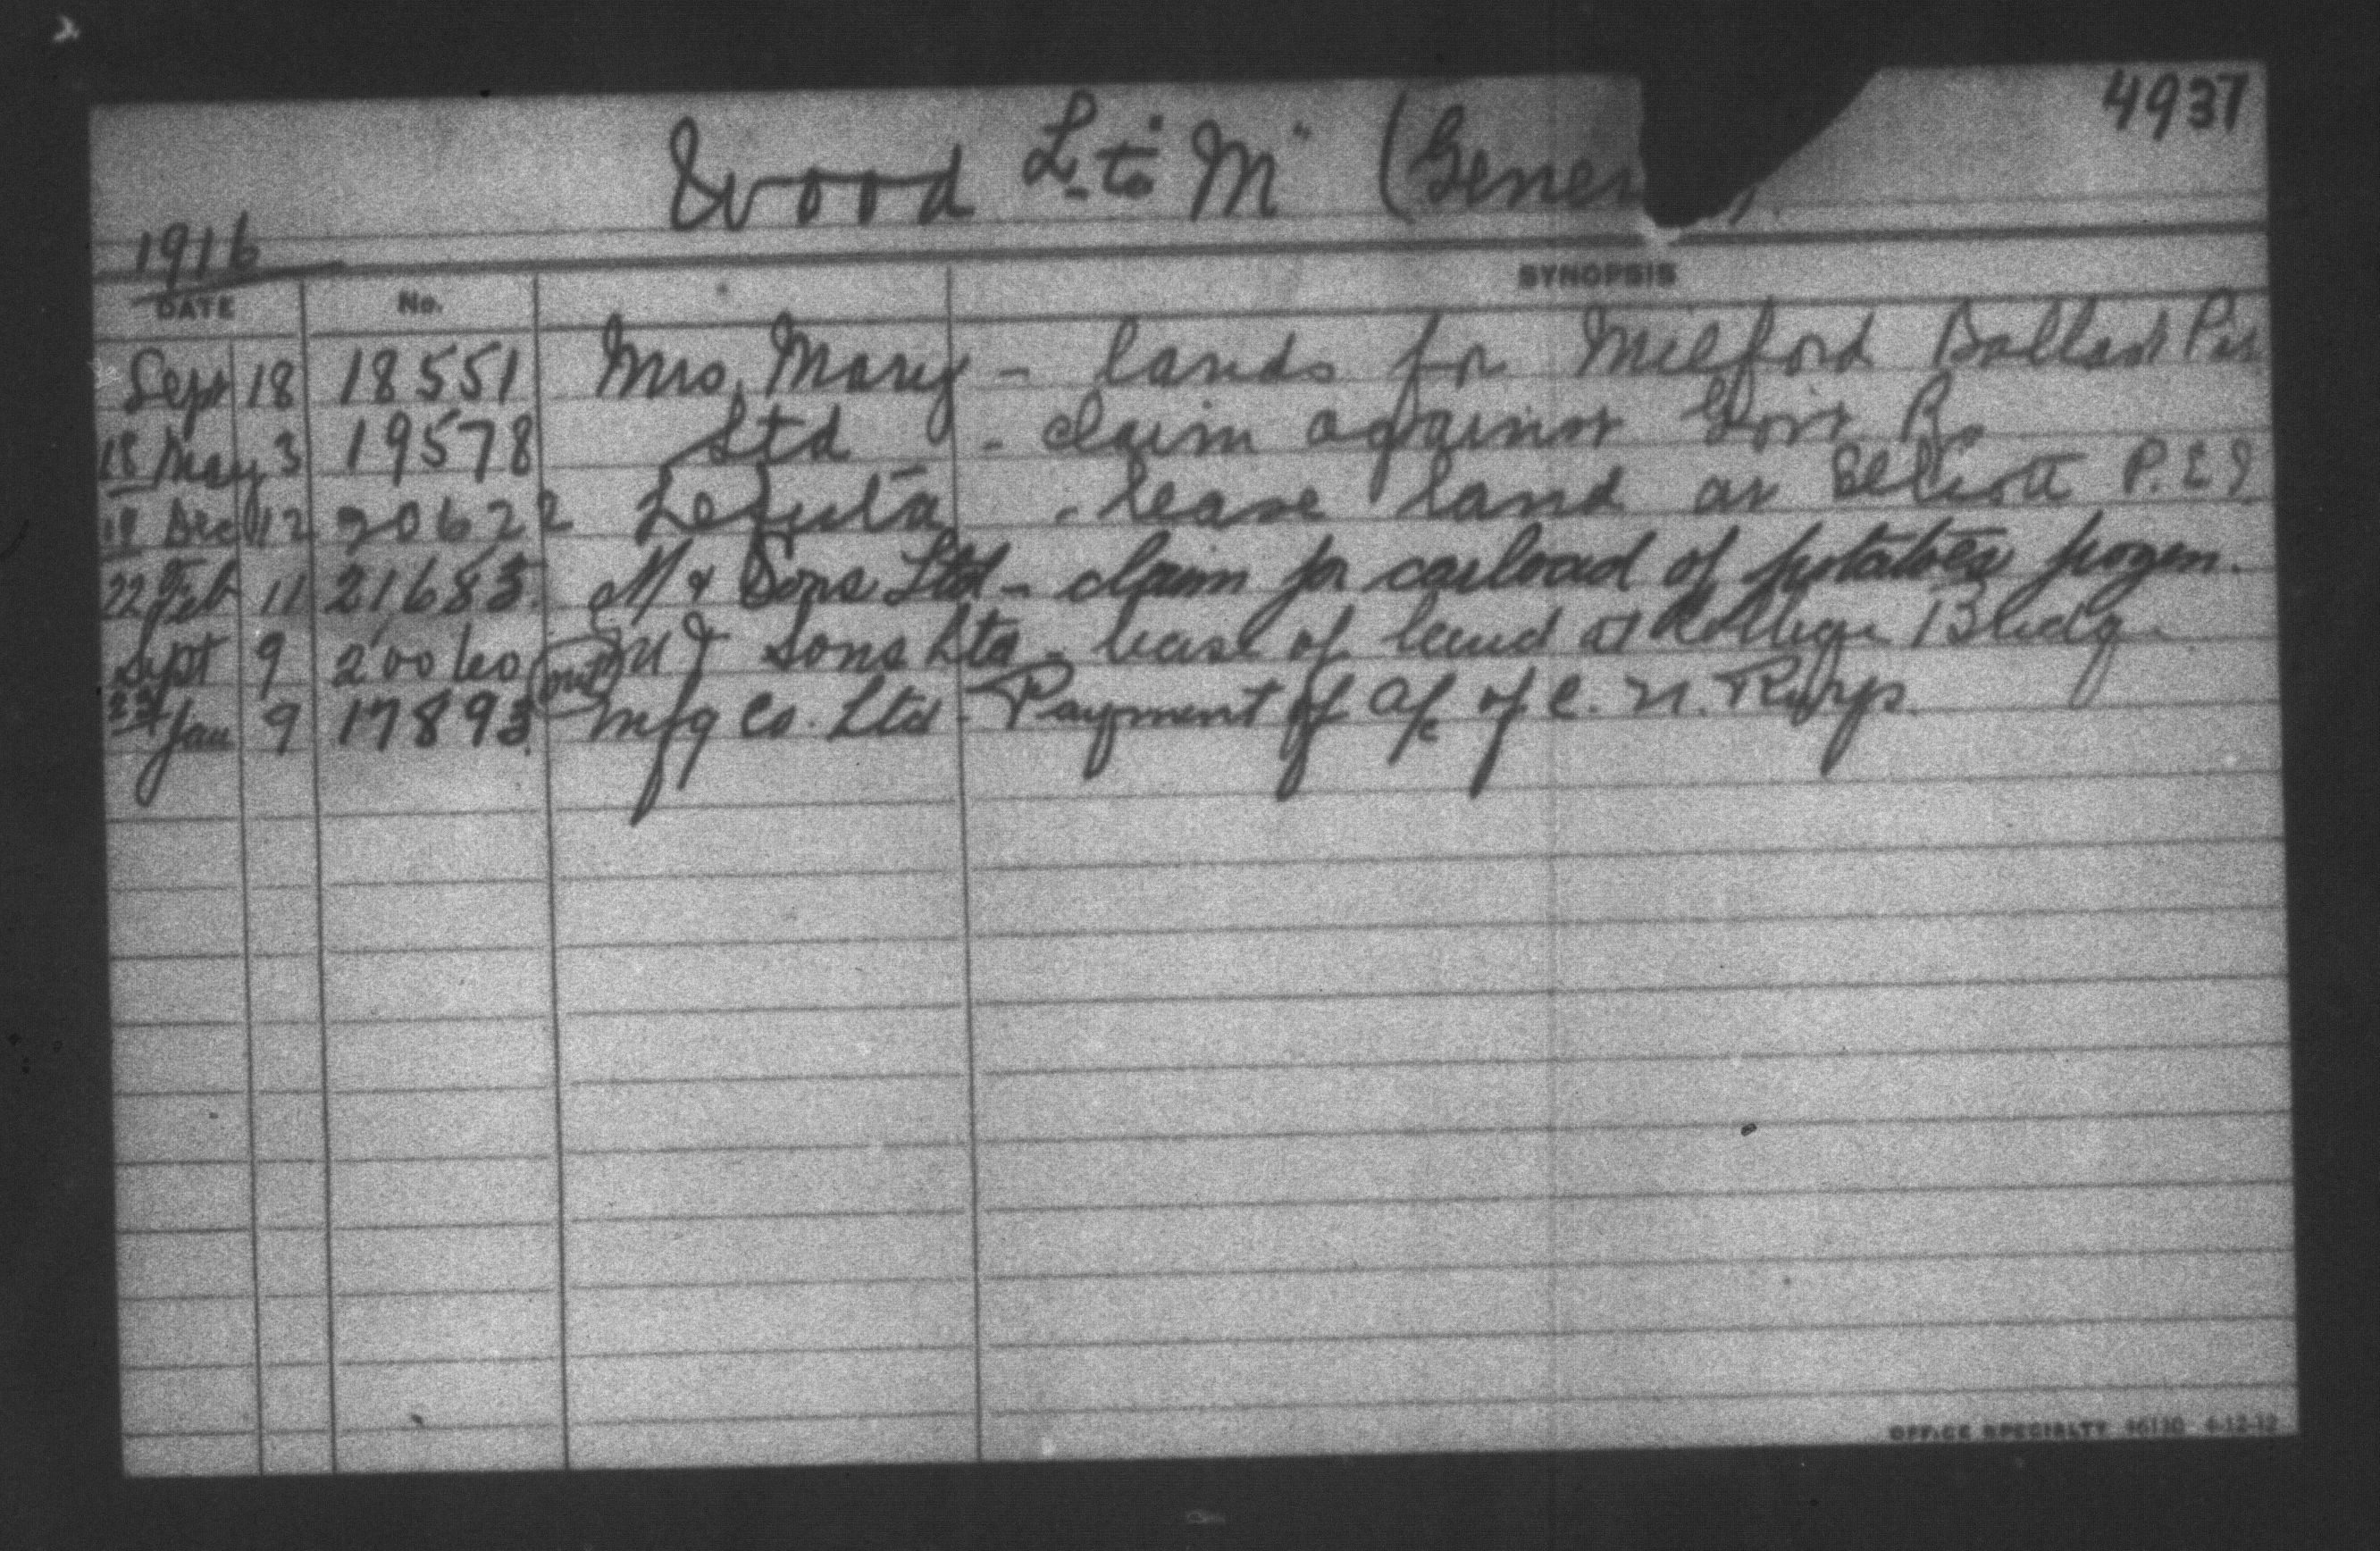 4937
Wood "L" to "M" (Gener
1916
DATE No. SYNOPSIS
Sept 18 18551 Mrs. Mary - lands for Milford Ballast Pit
18 May 3 19578 Ltd - claim against Govt Ry
19 Dec 12 20622 - lease land at P.E.I
22 Feb 11 21683. M & Sons Ltd - claim for carload of potatoes frozen.
Sept 9 20060 M & Sons Ltd - lease of land at College Bldg.
Jan 9 17893 Mfg Co. Ltd - Payment of a/c of C. N. Rlys.
OFFICE SPECIALTY 4-12-12